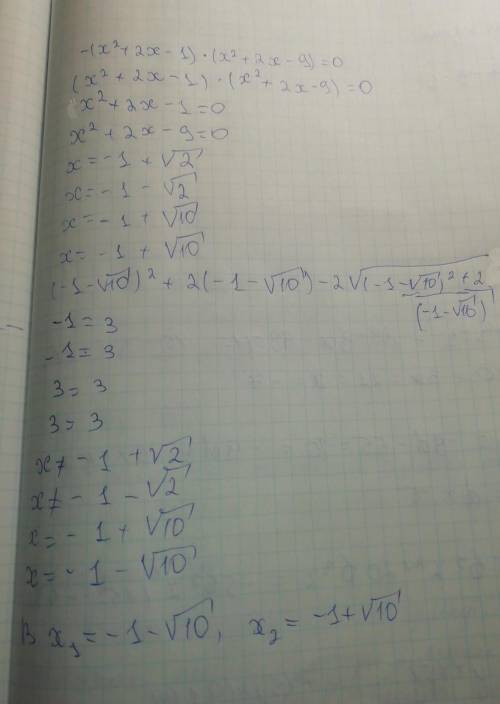 -(x²+2x-1)·(x²+2x-9)=0
(x²+2x-1)·(x²+2x-9)=0
x²+2x-1=0
x²+2x-9=0
x=-1+√2
x=-1-√2
x=-1+√10
x=-1+√10
(-1-√10)²+2(-1-√10)-2√(-1-√10)²+2
(-1-√10)
-1=3
-1=3
3=3
3=3
x≠-1+√2
x≠-1-√2
x=-1+√10
x=-1-√10
x₁=-1-√10, x₂=-1+√10